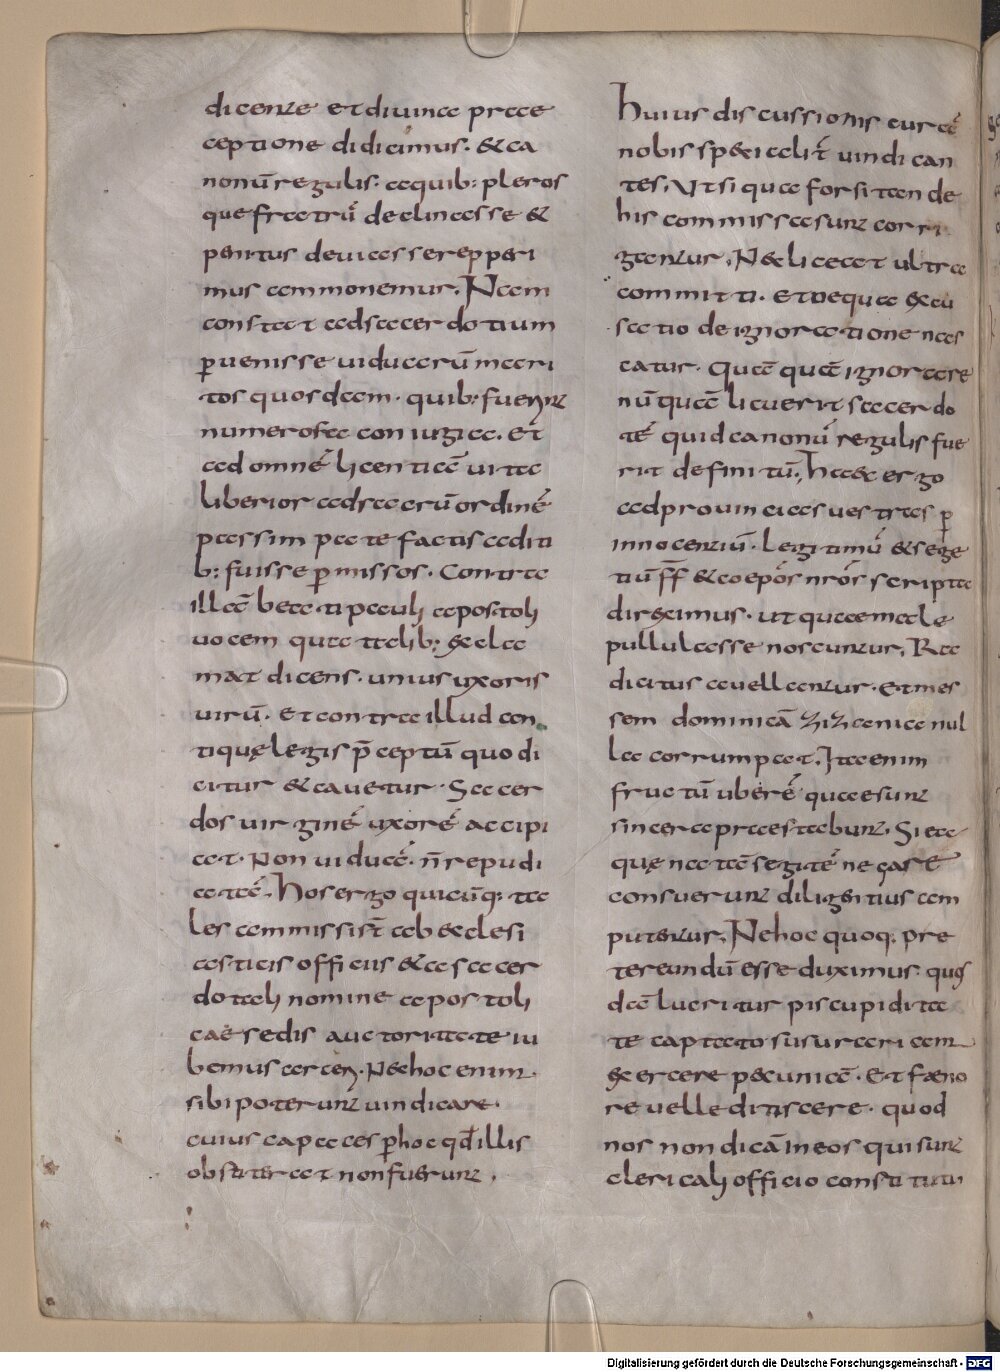 dicente et divina prae
ceptione didicimus. & ca
nonū regulis. a quib: pleros
que fratrū declinasse &
penitus deviasse repperi
mus ammonemur. Nam
constat ad sacerdotium
ꝑuenisse uiduarū mari
tos quosdam. quib: fuerunt
numerosa coniugia. Et
ad omnē licentiā uitae
liberior ad sacrū ordinē
passim patefactis aditi
b: fuisse ꝑmissos. Contra
illā beati pauli apostoli
uocem qua talib: & cla
mat dicens. unius uxoris
uirū. Et contra illud an
tiquę legis p̄ceptū quo di
citur & cauetur. Sacer
dos uirginē uxorē accipi
at. Non uiduā. n̄ repudi
atā. Hos ergo quicūq: ta
les ammissi st̄ ab ecclesi
asticis officiis & a sacer
dotali nomine apostoli
cae sedis auctoritate iu
bemus arceri. Nec hoc enim
sibi poterunt uindicare.
cuius capaces ꝑ hoc qđ illis
obstiterat non fuerunt.
Huius discussionis curā
nobis specialit̄ uindican
tes. Ut si qua forsitan de
his commissa sunt corri
gantur. Nec liceat ultra
committi. Et ne qua excu
satio de ignoratione nas
catur. Quā quā ignorare
nūquā licuerit sacerdo
tē quid canonū regulis fue
rit definitū. Haec ergo
ad prouincias uestras ꝑ
innocentiū. Legitimū & sege
tiū ff̄ & coep̄os nr̄os scripta
direximus. ut quae male
pullulasse noscuntur. Ra
dicitus auellantur. Et mes
sem dominicā zizania nul
la corrumpat. Ita enim
fructū uberē quae sunt
sincera praestabunt. Si ea
quę natā segitē necare
consuerunt diligentius am
putentur. Nec hoc quoq: pre
tereundū esse duximus. quos
dā lucri turpis cupidita
te captatos usurariam
exercere pecuniā. Et fæno
re uelle ditiscere. quod
nos non dicā in eos qui sunt
clericali officio constituti